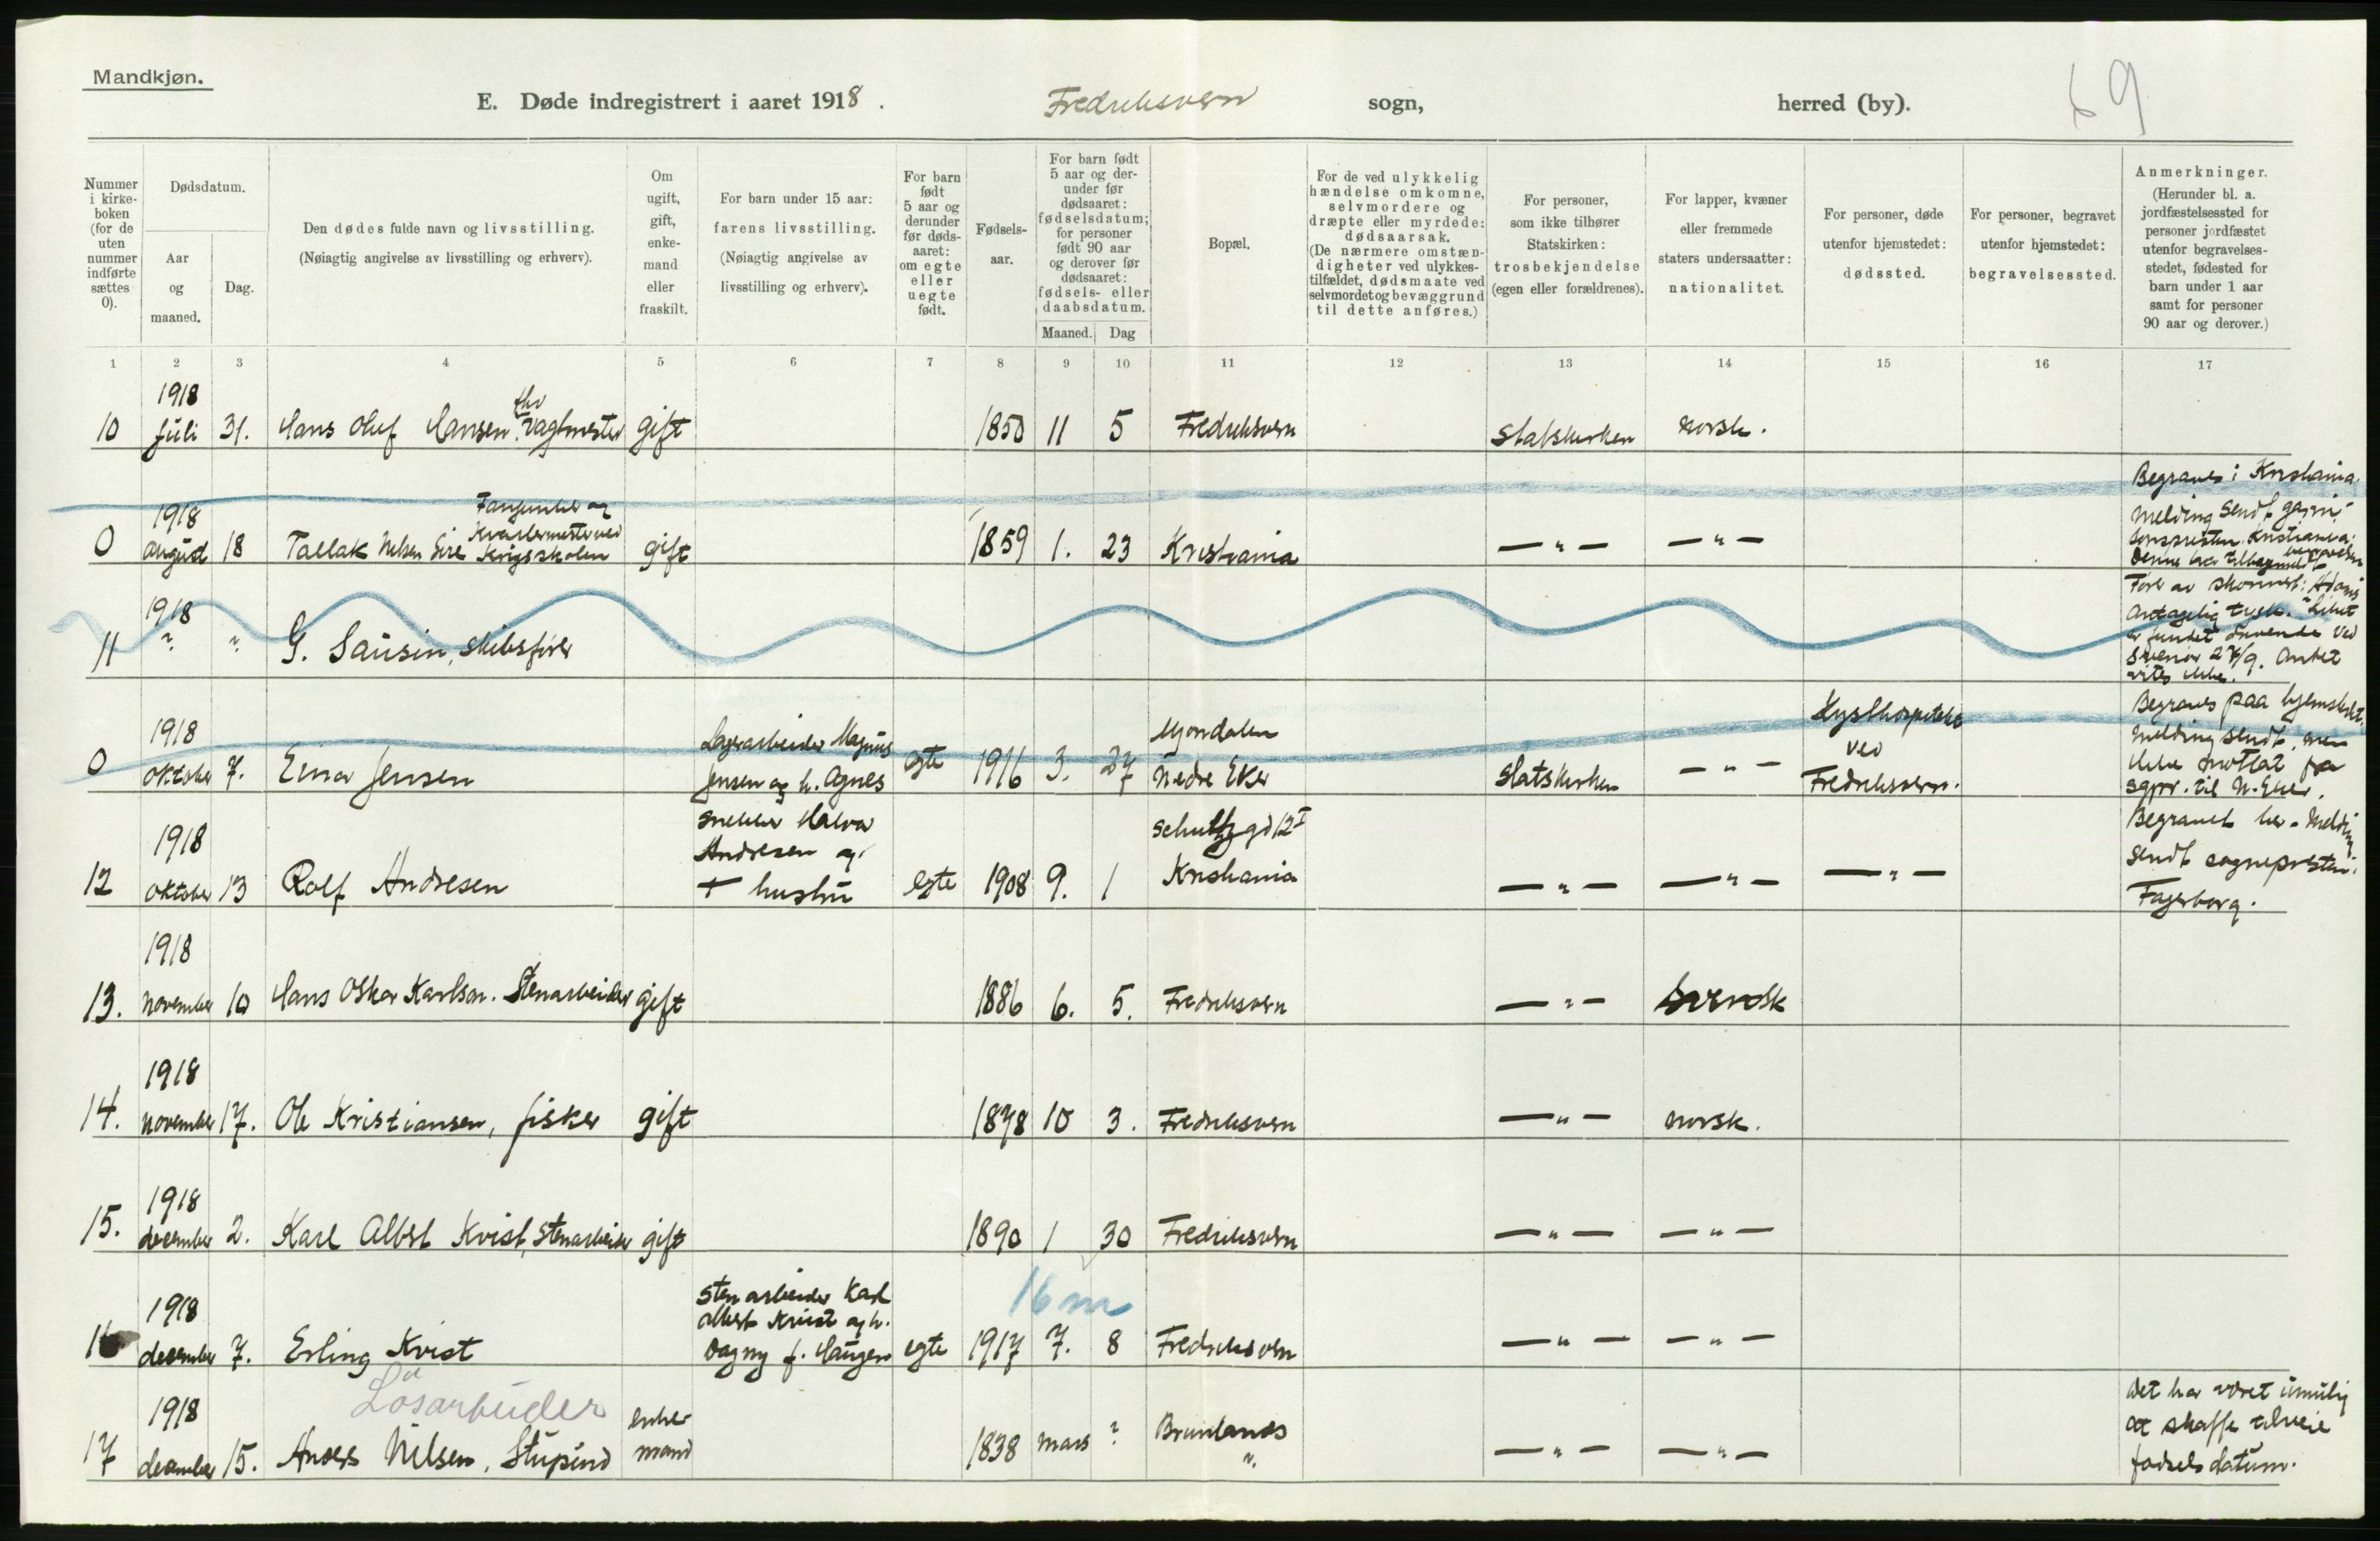 Mandkjøn.
E. Døde indregistrert i aaret 1918. Fredriksvern sogn, herred (by). 69
Nummer i kirke-boken (for de uten nummer indførte sættes 0).
Dødsdatum.
Aar og maaned.
Dag.
Den dødes fulde navn og livsstilling.
(Nøiagtig angivelse av livsstilling og erhverv).
Om ugift, gift, enke-mand eller fraskilt.
For barn under 15 aar: farens livsstilling.
(Nøiagtig angivelse av livsstilling og erhverv).
For barn født 5 aar og derunder før døds-aaret: om egte eller uegte født.
Fødsels-aar.
For barn født 5 aar og der-under før dødsaaret: fødselsdatum; for personer født 90 aar og derover før dødsaaret: fødsels- eller daabsdatum.
Maaned. Dag
Bopæl.
For de ved ulykkelig hændelse omkomne, selvmordere og dræpte eller myrdede: dødsaarsak.
(De nærmere omstæn-digheter ved ulykkes-tilfældet, dødsmaate ved selvmordet og bevæggrund til dette anføres.)
For personer, som ikke tilhører Statskirken: trosbekjendelse (egen eller forældrenes).
For lapper, kvæner eller fremmede staters undersaatter: nationalitet.
For personer, døde utenfor hjemstedet: dødssted.
For personer, begravet utenfor hjemstedet: begravelsessted.
Anmerkninger.
(Herunder bl. a. jordfæstelsessted for personer jordfæstet utenfor begravelses-stedet, fødested for barn under 1 aar samt for personer 90 aar og derover.)
1 2 3 4 5 6 7 8 9 10 11 12 13 14 15 16 17
1918
10 juli 31. Hans Oluf Hansen fhv Vagtmester gift 1850 11 5 Fredriksvern Statskirken norsk.
1918
0 august 18 Tallak Nelsen Eire Kvartermester ved Krigsskolen gift 1859 1. 23 Kristiania — " — — " —
Begraves i Kristiania.
Melding sendt
Kristiania.
1918
11 ? " G. Sausin, skibsfører
Antagelig tysk. Liket
er fundet drivende ved
27/9. Antet
vites ikke.
1918
0 oktober 7. Einar Jensen
Lagerarbeider Magnus
Jensen og h. Agnes
egte 1916 3. 27
Mjøndalen
Nedre Eker
Statskirken — " —
Kysthospitalet
ved
Fredriksvern.
Begraves paa hjemstedet.
Melding sendt, men
ikke mottat fra
sgpr. til N. Eker.
1918
12 oktober 13 Rolf Andresen
snekker Halvor
Andresen og
+ hustru
egte 1908 9. 1
Schultzgd 12 I
Kristiania
— " — — " — — " —
Begravet her. Melding
sendt sognepresten i
Fagerborg.
1918
13. november 10 Hans Oskar Karlson. Stenarbeider gift 1886 6. 5. Fredriksvern — " — Svensk
1918
14. november 17. Ole Kristiansen, fisker gift 1878 10 3. Fredriksvern — " — norsk.
1918
15. december 2. Karl Albert Kvist, Stenarbeider gift 1890 1 30 Fredriksvern — " — — " —
16 m
1918
16 december 7. Erling Kvist
Stenarbeider Karl
Albert Kvist og h.
Dagny f. Haugen
egte 1917 7. 8 Fredriksvern — " — — " —
Løsarbeider
1918
17 december 15. Anders Nilsen, Stupind
enke-
mand
1838 mars ? Brunlanes
"
— " — — " —
Det har været umulig
at skaffe tilveie
fødselsdatum.